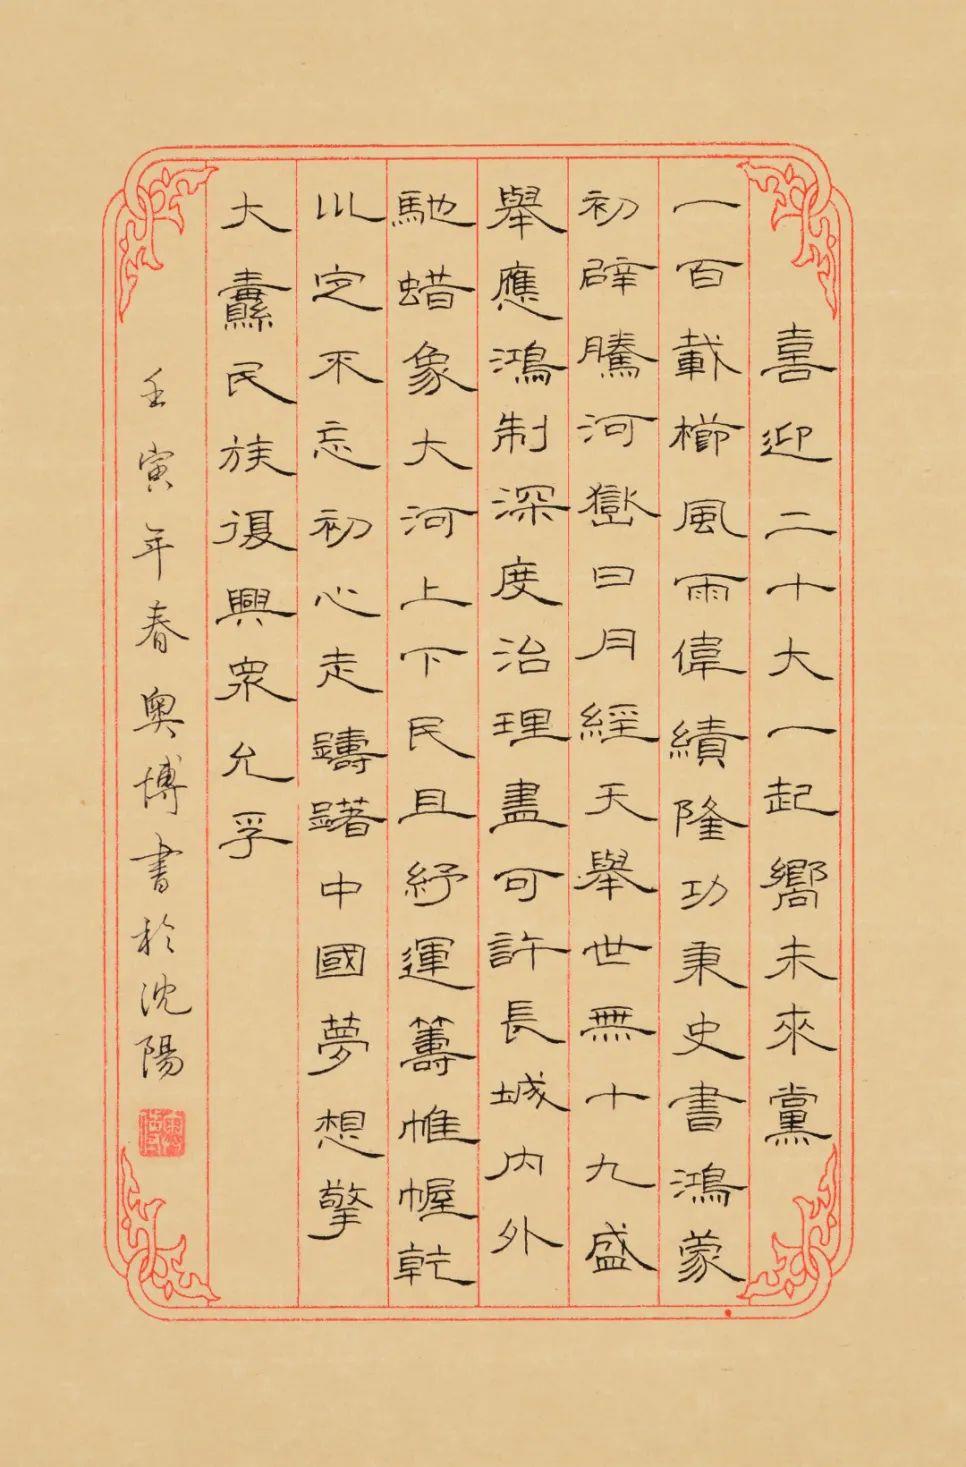 喜迎二十大一起嚮未來黨
一百載櫛風雨偉績隆功秉史書鴻蒙
初辟騰河嶽日月經天舉世無十九盛
舉應鴻制深度治理盡可許長城內外
馳蜡象大河上下民且紓運籌帷幄乾
巛定不忘初心走躊躇中國夢想擎
大纛民族復興衆允孚
壬寅年春奧博書於沈陽